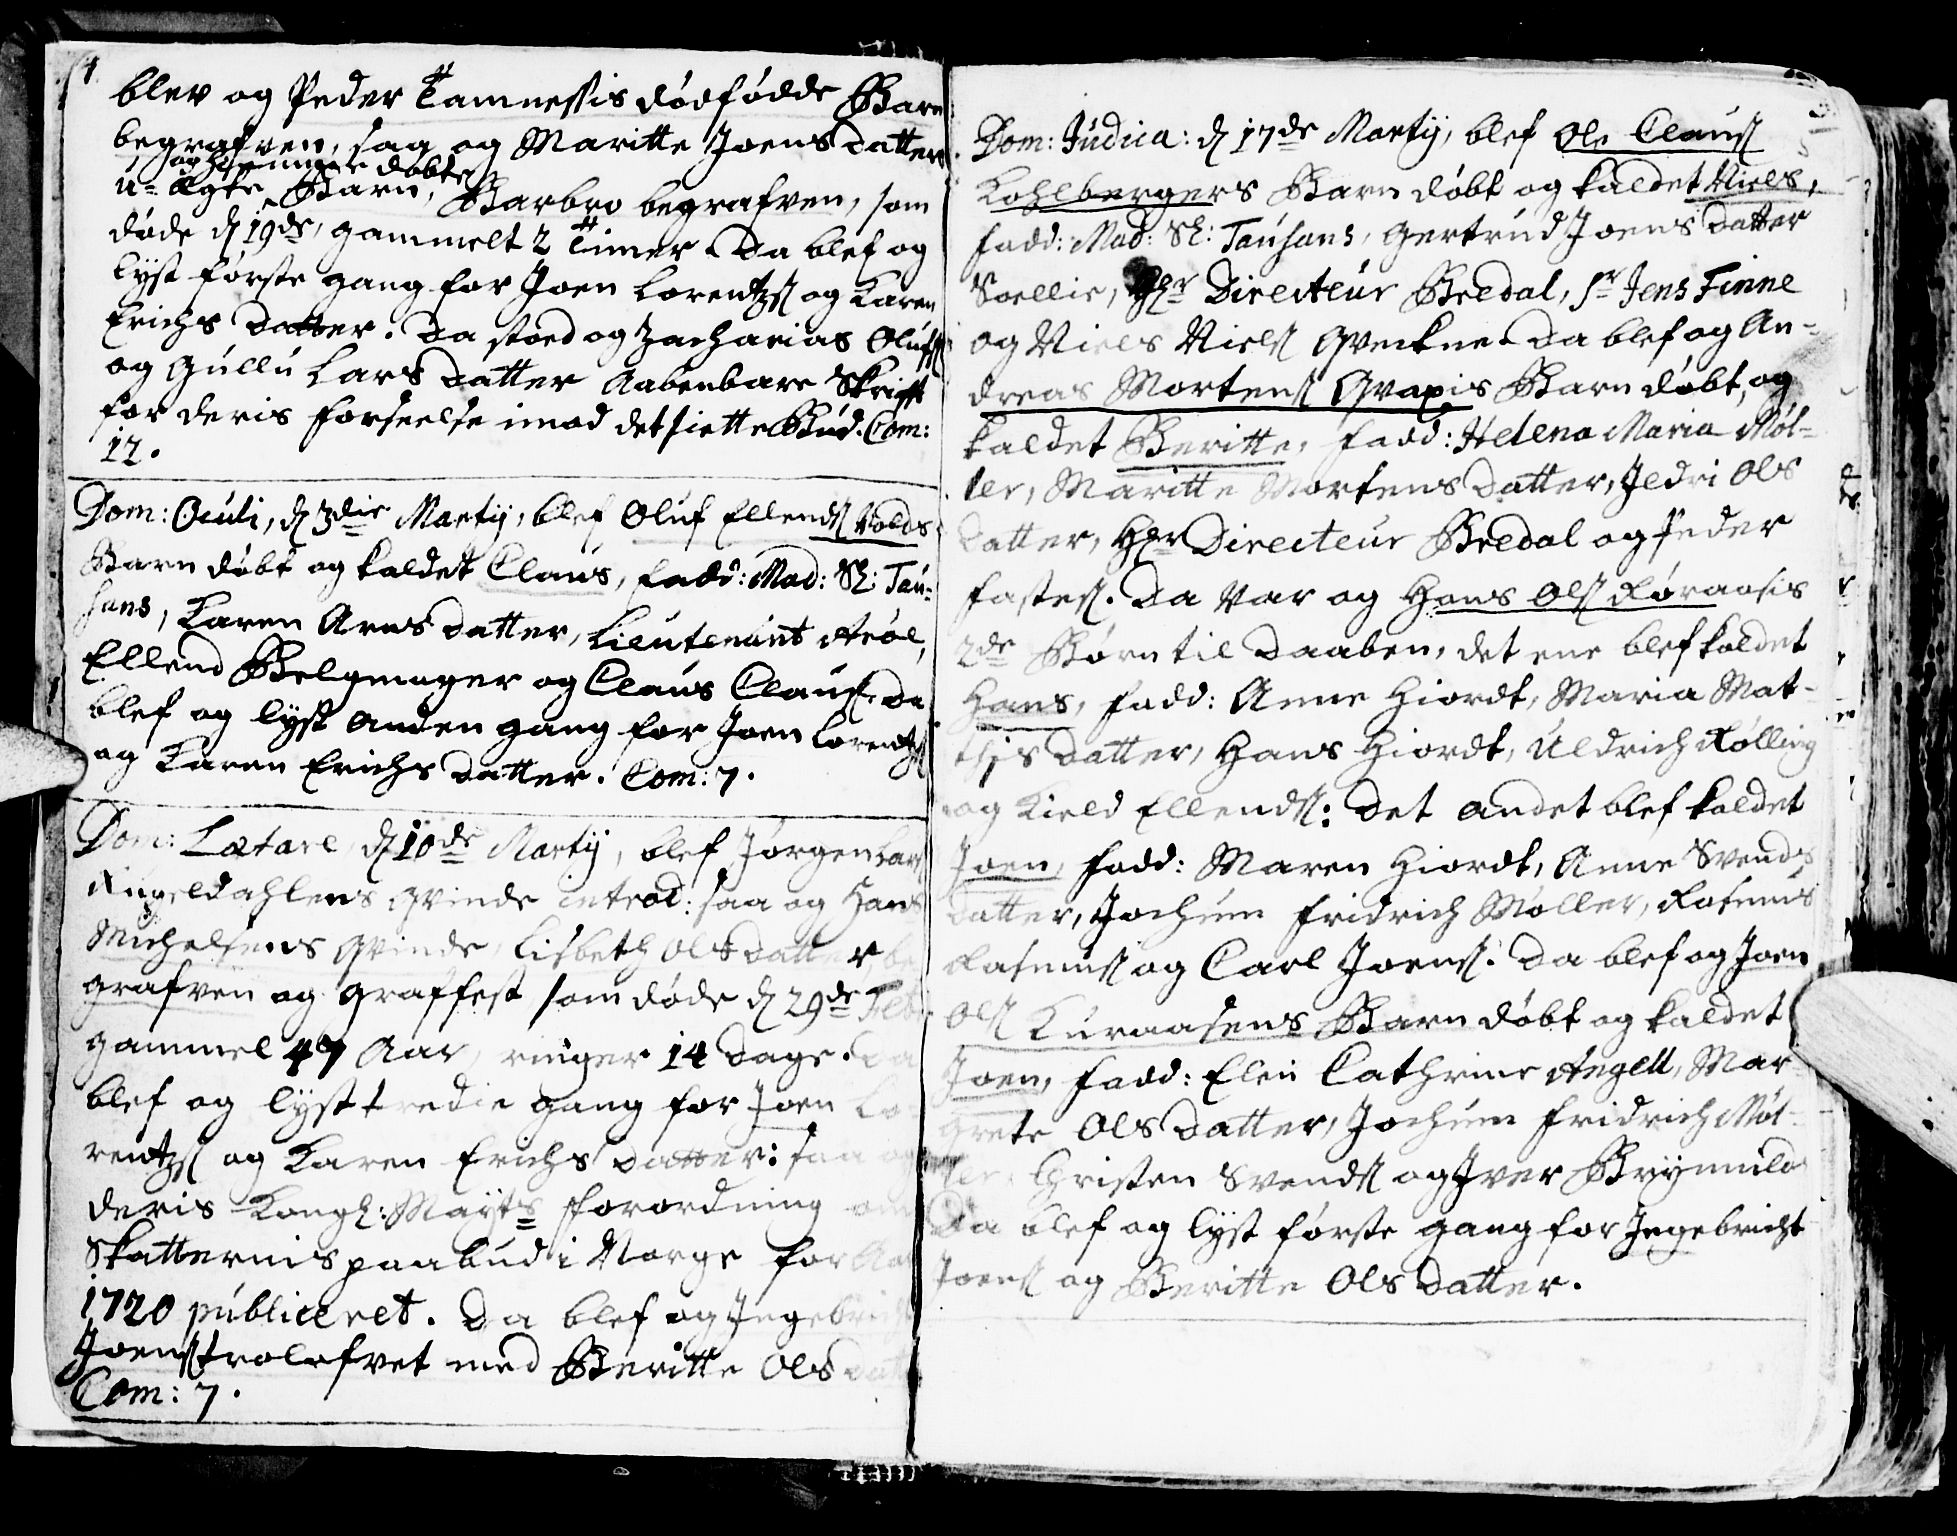 4.
blev og Peder Tamnessis dødfødde Barn
begrafven, saa og Maritte Joens Datters
og hiemme døbte
u-ægte Barn, Barbro begrafven, som
døde d. 19de, gammelt 2 Timer. Da blef og
lyst første gang for Joen Lorentzs. og Karen
Erichs Datter. Da stoed og Zacharias Olufs.
og Gullu Lars Datter Aabenbare Skrifft
for deris forseelse imod det siette Bud. Com:
12.
Dom: Oculi, d. 3die Martij, blef Oluf Ellends. Volds
Barn døbt og kaldet Claus, fadd: Mad: Sl: Tau-
sans, Karen Arns Datter, Lieutenant
Ellend Belgmager og Claus Claus. Da
blef og lyst Anden gang for Joen Lorentzs.
og Karen Erichs Datter. Com: 7.
Dom: Lætare, d. 10de Martij, blef Jørgen Lars.
Ringeldahlens Qvinde introd: saa og Hans
Michelsens Qvinde, Lisbeth Ols Datter be-
grafven og graffest som døde d. 29de Feb.
gammel 47 Aar, ringer 14 Dage. Da
blef og lyst tredie gang for Joen Lo-
rentzs. og Karen Erichs Datter: saa og
deris Kongl: Mayts forordning om
Skatternis paabud i Norge for Aar
1720 publiceret. Da blef og Ingebricht
Joens. trolofvet med Beritte Ols Datt
Com: 7.
5
Dom: Judica: d. 17de Martij, blef Ole Claus.
Kohlbergers Barn døbt og kaldet Niels,
fadd: Mad: Sl: Tausans, Gertrud Joens Datter
Soellie, Hr Directeur Bredal, Sr Jens Finne
og Niels Niels. Qveckne. Da blef og An-
dreas Mortens. Qvapis Barn døbt, og
kaldet Beritte, fadd: Helena Maria Møl-
ler, Maritte Mortens Datter, Jedri Ols
Datter, Hr Directeur Bredal og Peder
fastes. Da var og Hans Ols. Røraasis
2de Børn til Daaben, det ene blef kaldet
Hans, fadd: Anne Hiordt, Maria Mat-
this Datter, Hans Hiordt, Uldrich Rølling
og Kield Ellends: Det andet blef kaldet
Joen, fadd: Maren Hiordt, Anne Svends
Datter, Jochum Fridrich Møller, Rasmus
Rasmus. og Carl Joens. Da blef og Joen
Ols. Kuraasens Barn døbt og kaldet
Joen, fadd: Elen Cathrine Angell, Mar-
grete Ols Datter, Jochum Fridrich Møl-
ler, Christen Svends. og Iver Brynnild
Da blef og lyst første gang for Ingebricht
Joens. og Beritte Ols Datter.